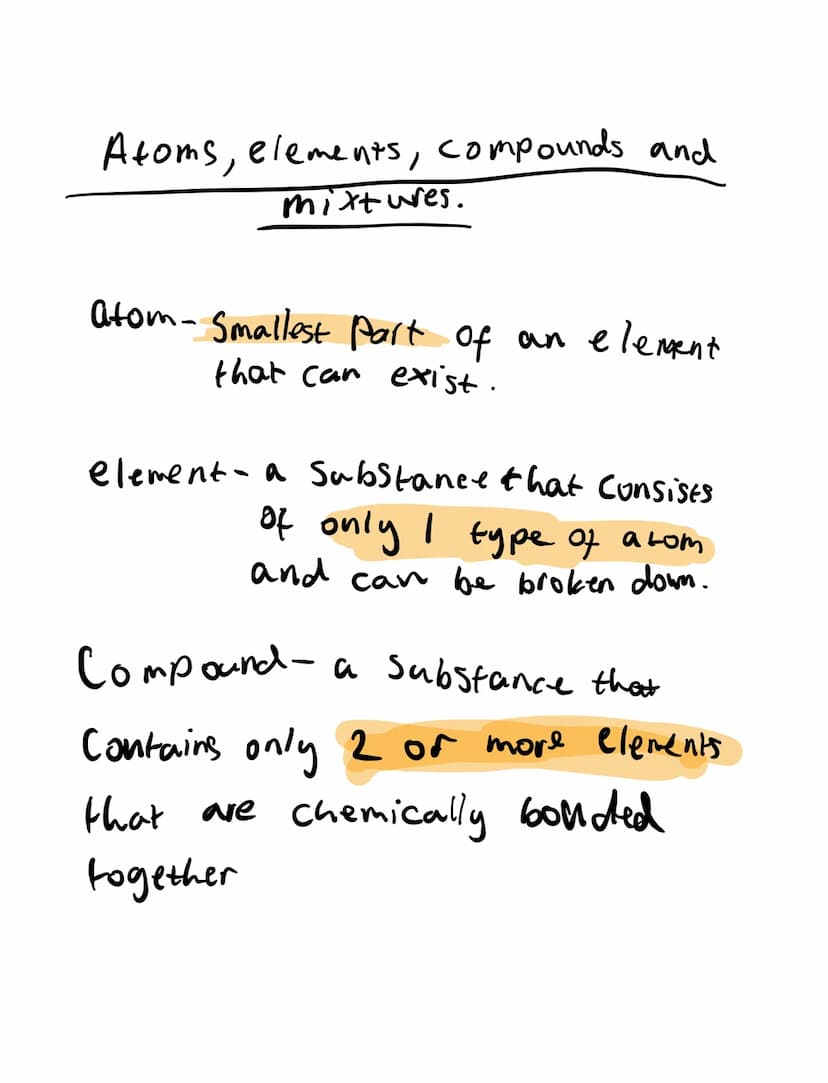 Atoms, elements, compounds and
mixtures.
atom- smallest part of an element
that can exist.
element- a substance that consists
of only 1 type of atom
and can be broken down.
Compound- a substance that
contains only 2 or more elements
that are chemically bonded
together